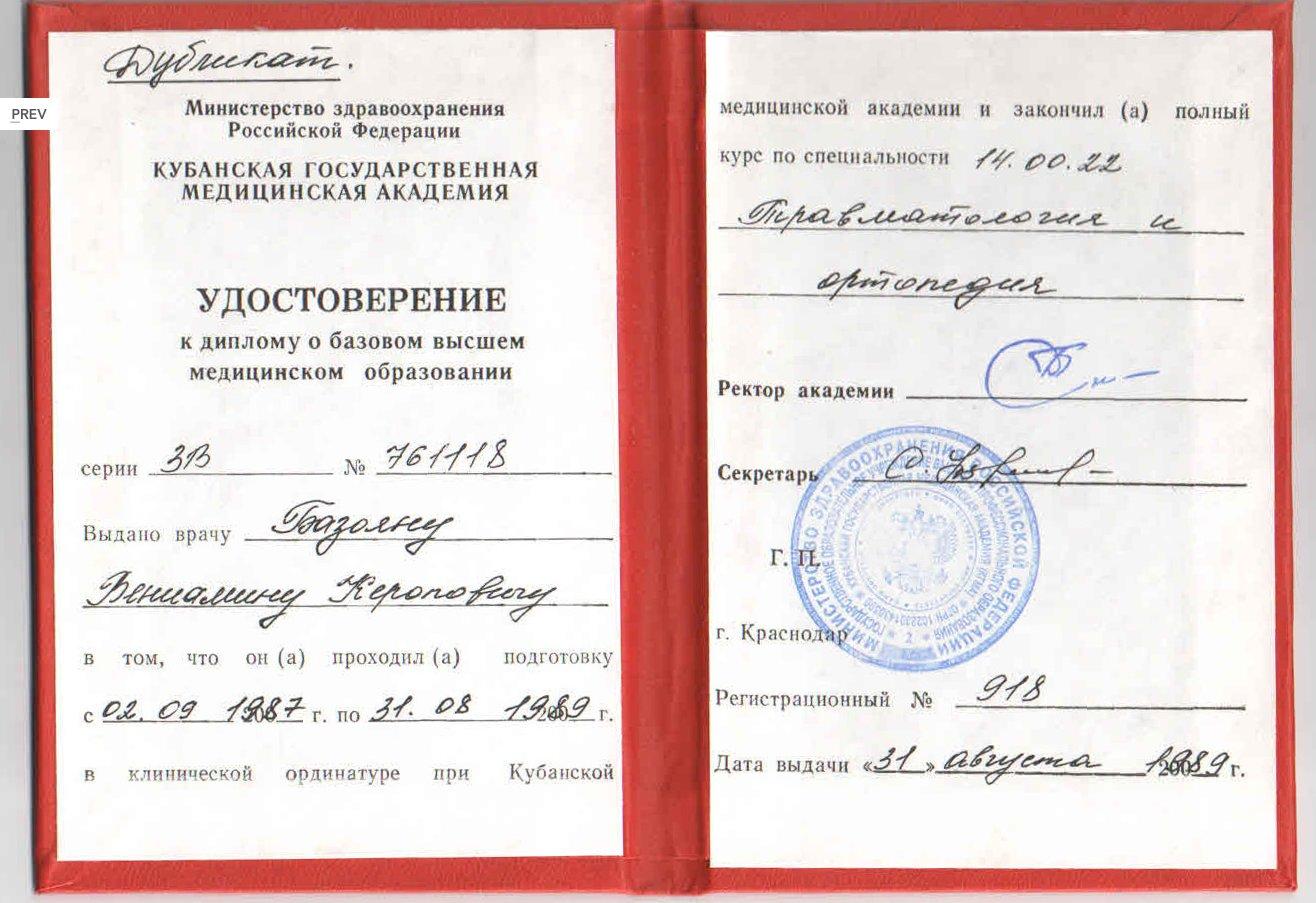 PREV
Дубликат.
Министерство здравоохранения
Российской Федерации
КУБАНСКАЯ ГОСУДАРСТВЕННАЯ
МЕДИЦИНСКАЯ АКАДЕМИЯ
УДОСТОВЕРЕНИЕ
к диплому о базовом высшем
медицинском образовании
серии ЗВ № 761118
Выдано врачу Базояну
Вениамину Кероповичу
в том, что он (а) проходил (а) подготовку
с 02. 09 1987 г. по 31. 08 1989 г.
в клинической ординатуре при Кубанской
медицинской академии и закончил (а) полный
курс по специальности 14.00.22
Травматология и
ортопедия
Ректор академии
Секретарь
Г. П.
МИНИСТЕРСТВО ЗДРАВООХРАНЕНИЯ РОССИЙСКОЙ ФЕДЕРАЦИИ
г. Краснодар
Регистрационный № 918
Дата выдачи «31» августа 1989 г.